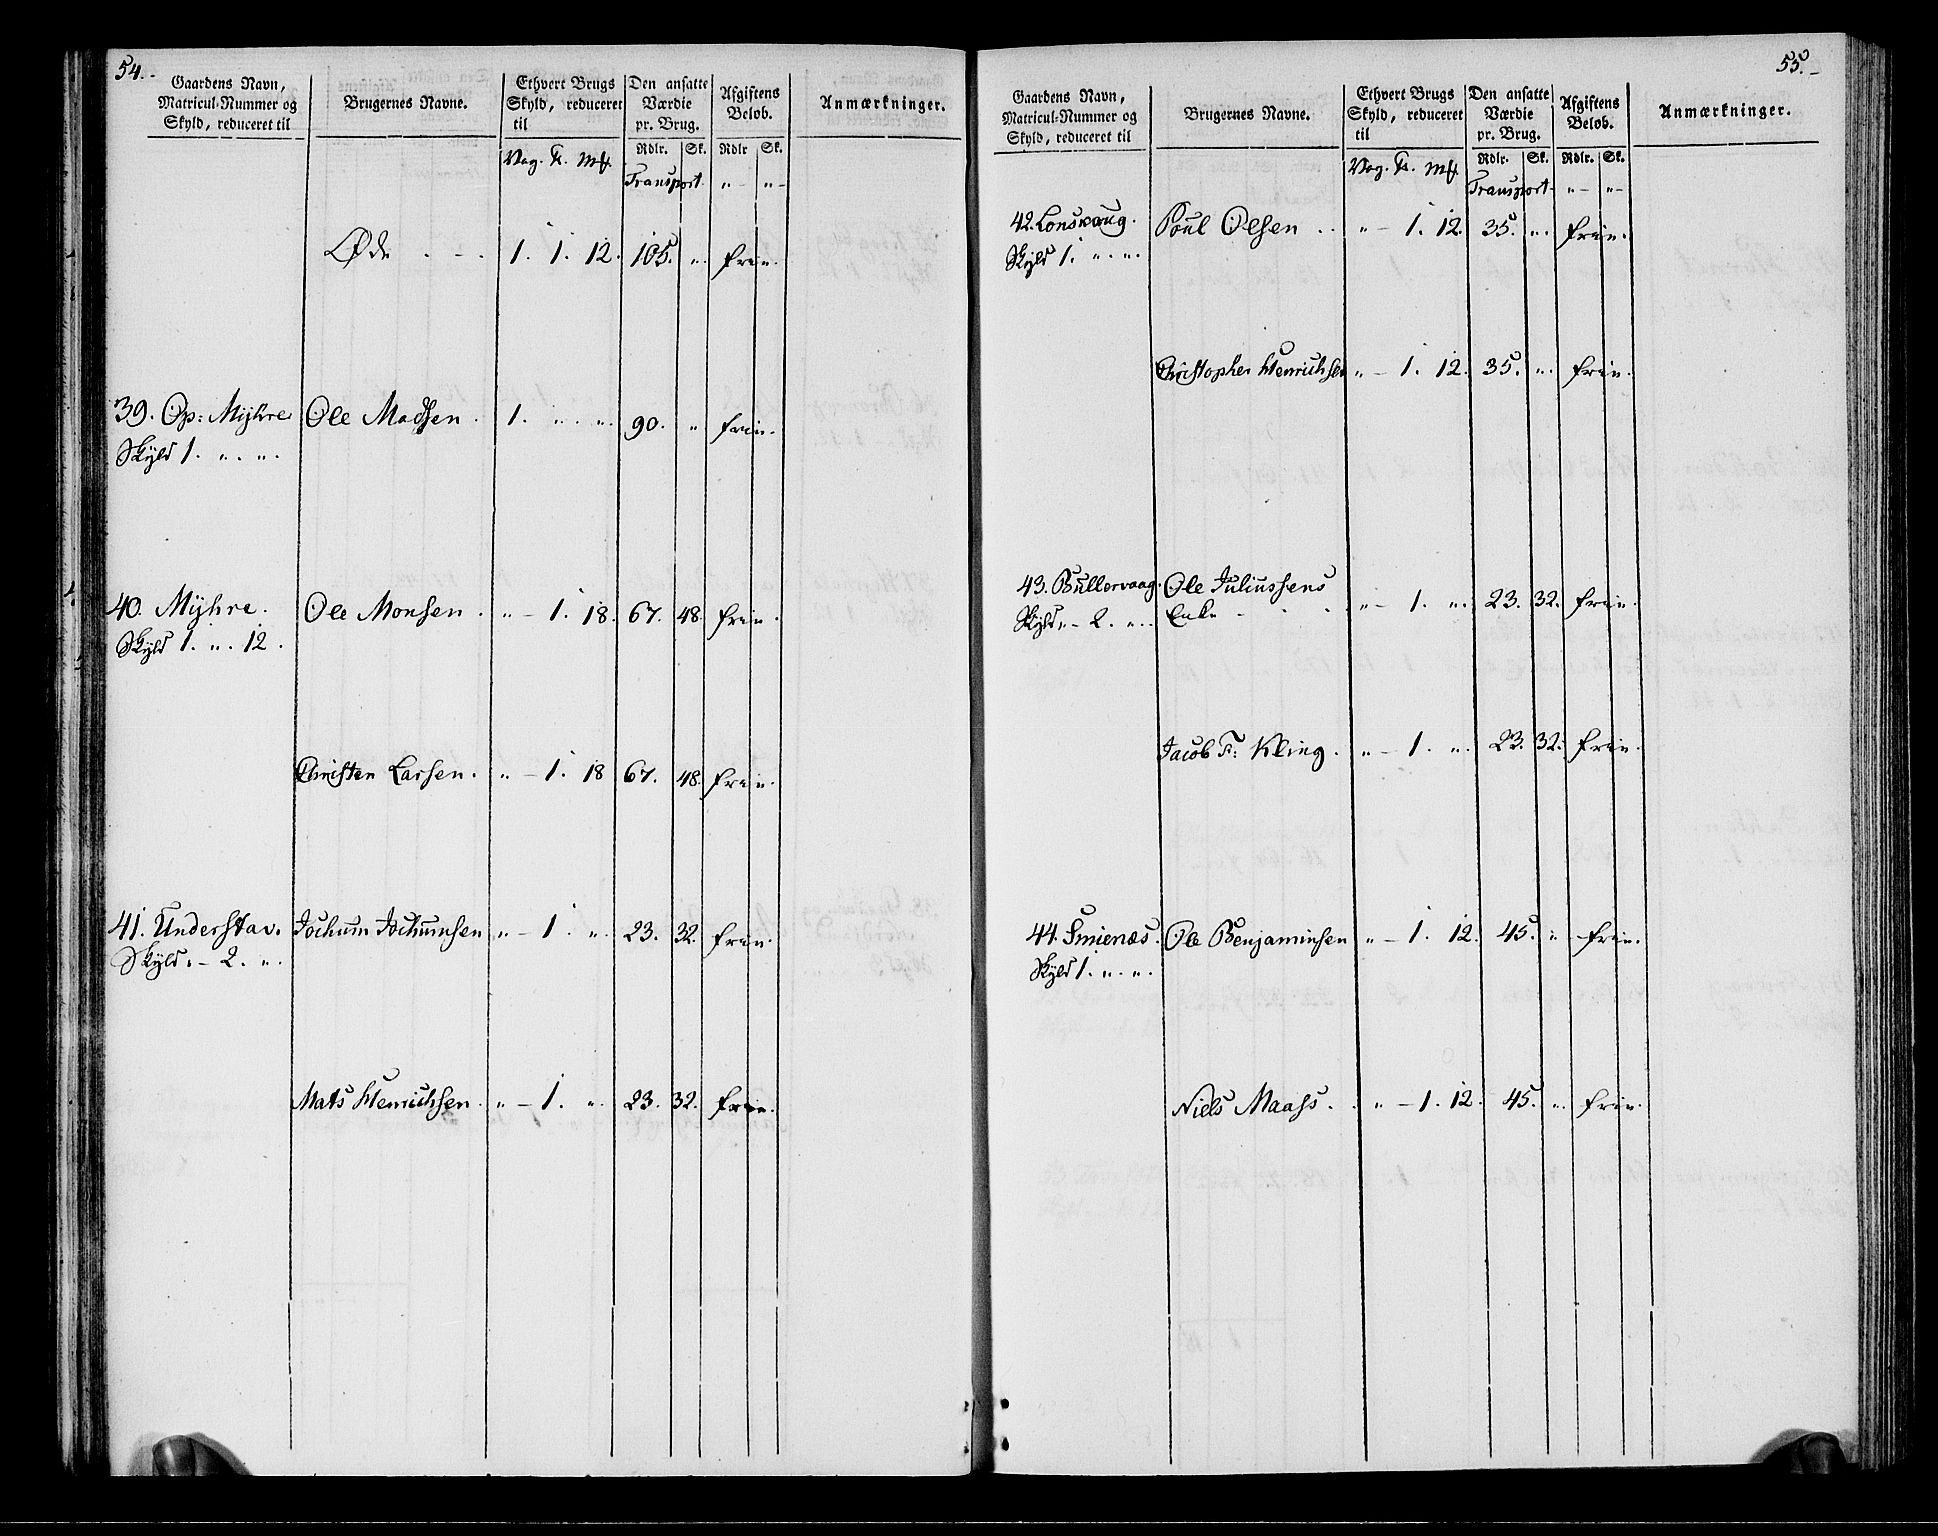 54.
Gaardens Navn,
Matricul-Nummer og
Skyld, reduceret til
Brugernes Navne.
Ethvert Brugs
Skyld, reduceret
til
Den ansatte
Værdie
pr. Brug.
Afgiftens
Beløb.
Anmærkninger.
Vog. Pd. Mk.
Rdlr. Sk. Rdlr Sk.
Transport. " - " -
Øde . - . 1. 1. 12. 105. ". frie.
39. Op: Myhre Ole Madsen . 1. ". ". 90. " frie.
Skyld 1. ". ".
40. Myhre. Ole Monsen . " - 1. 18. 67. 48. frie.
Skyld 1. ". 12.
Christen Larsen. " - 1. 18 67. 48. frie.
41. Understav. Jochum Jochumsen " - 1. ". 23. 32. frie.
Skyld " - 2. ".
Mats Henrichsen. " - 1. ". 23. 32. frie.
55.
Gaardens Navn,
Matricul-Nummer og
Skyld, reduceret til
Brugernes Navne.
Ethvert Brugs
Skyld, reduceret
til
Den ansatte
Værdie
pr. Brug.
Afgiftens
Beløb.
Anmærkninger.
Vog. Pd. Mk.
Rdlr. Sk. Rdlr. Sk.
Transport " - " -
42. Lonskoug. Poul Olsen . . " - 1. 12. 35. ". frie.
Skyld 1. ". ".
Christopher Henrichsen " - 1. 12. 35. ". frie.
43. Bullervaag. Ole Juliussens
Skyld " - 2. ". Enke - . . " - 1. ". 23. 32. frie.
Jacob F: Kling . " - 1. ". 23. 32. frie.
44. Smienæs. Ole Benjaminsen " - 1. 12. 45. " frie.
Skyld 1. ". ".
Niels Maass. . " - 1. 12. 45. ". frie.